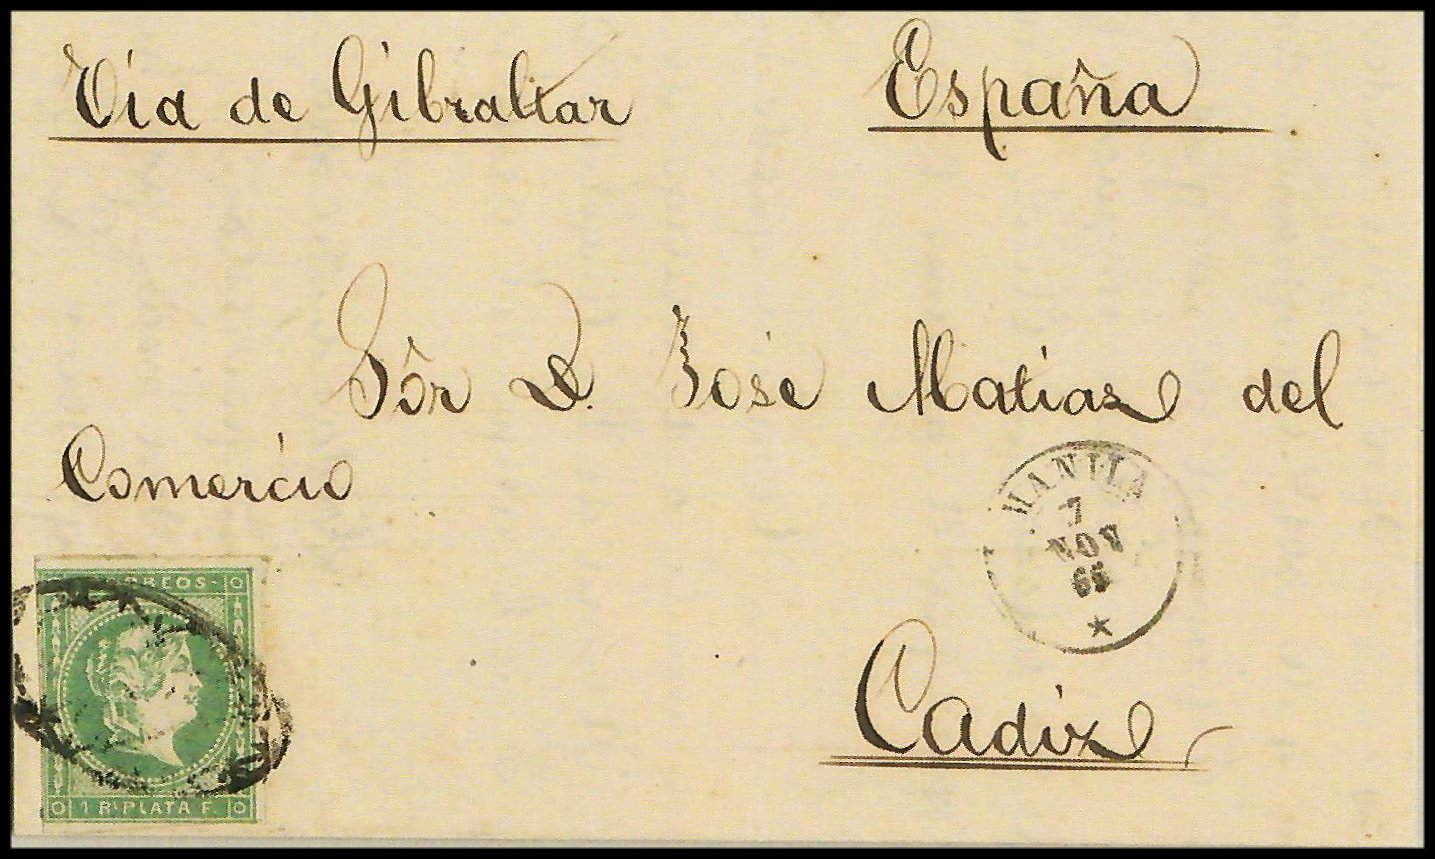 Via de Gibraltar
España
Sôr D. José Matias del
Comercio
MANILA
7
NOV
65
Cadiz
CORREOS
1 Rl PLATA F.